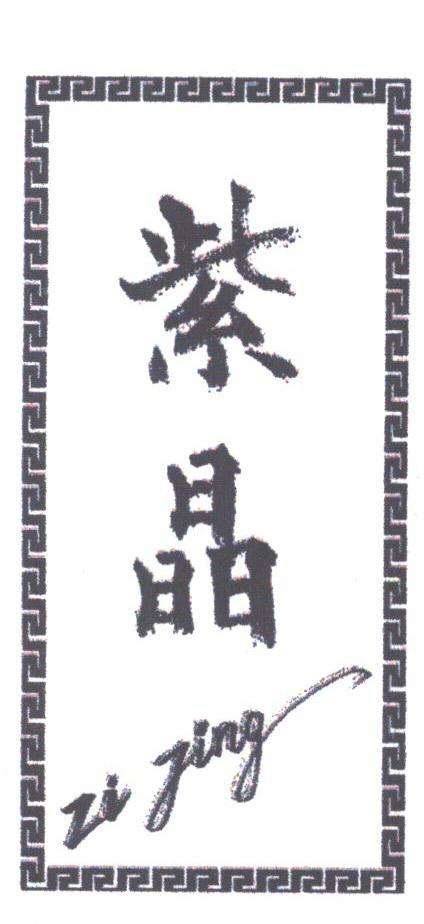 紫
晶
zi jing